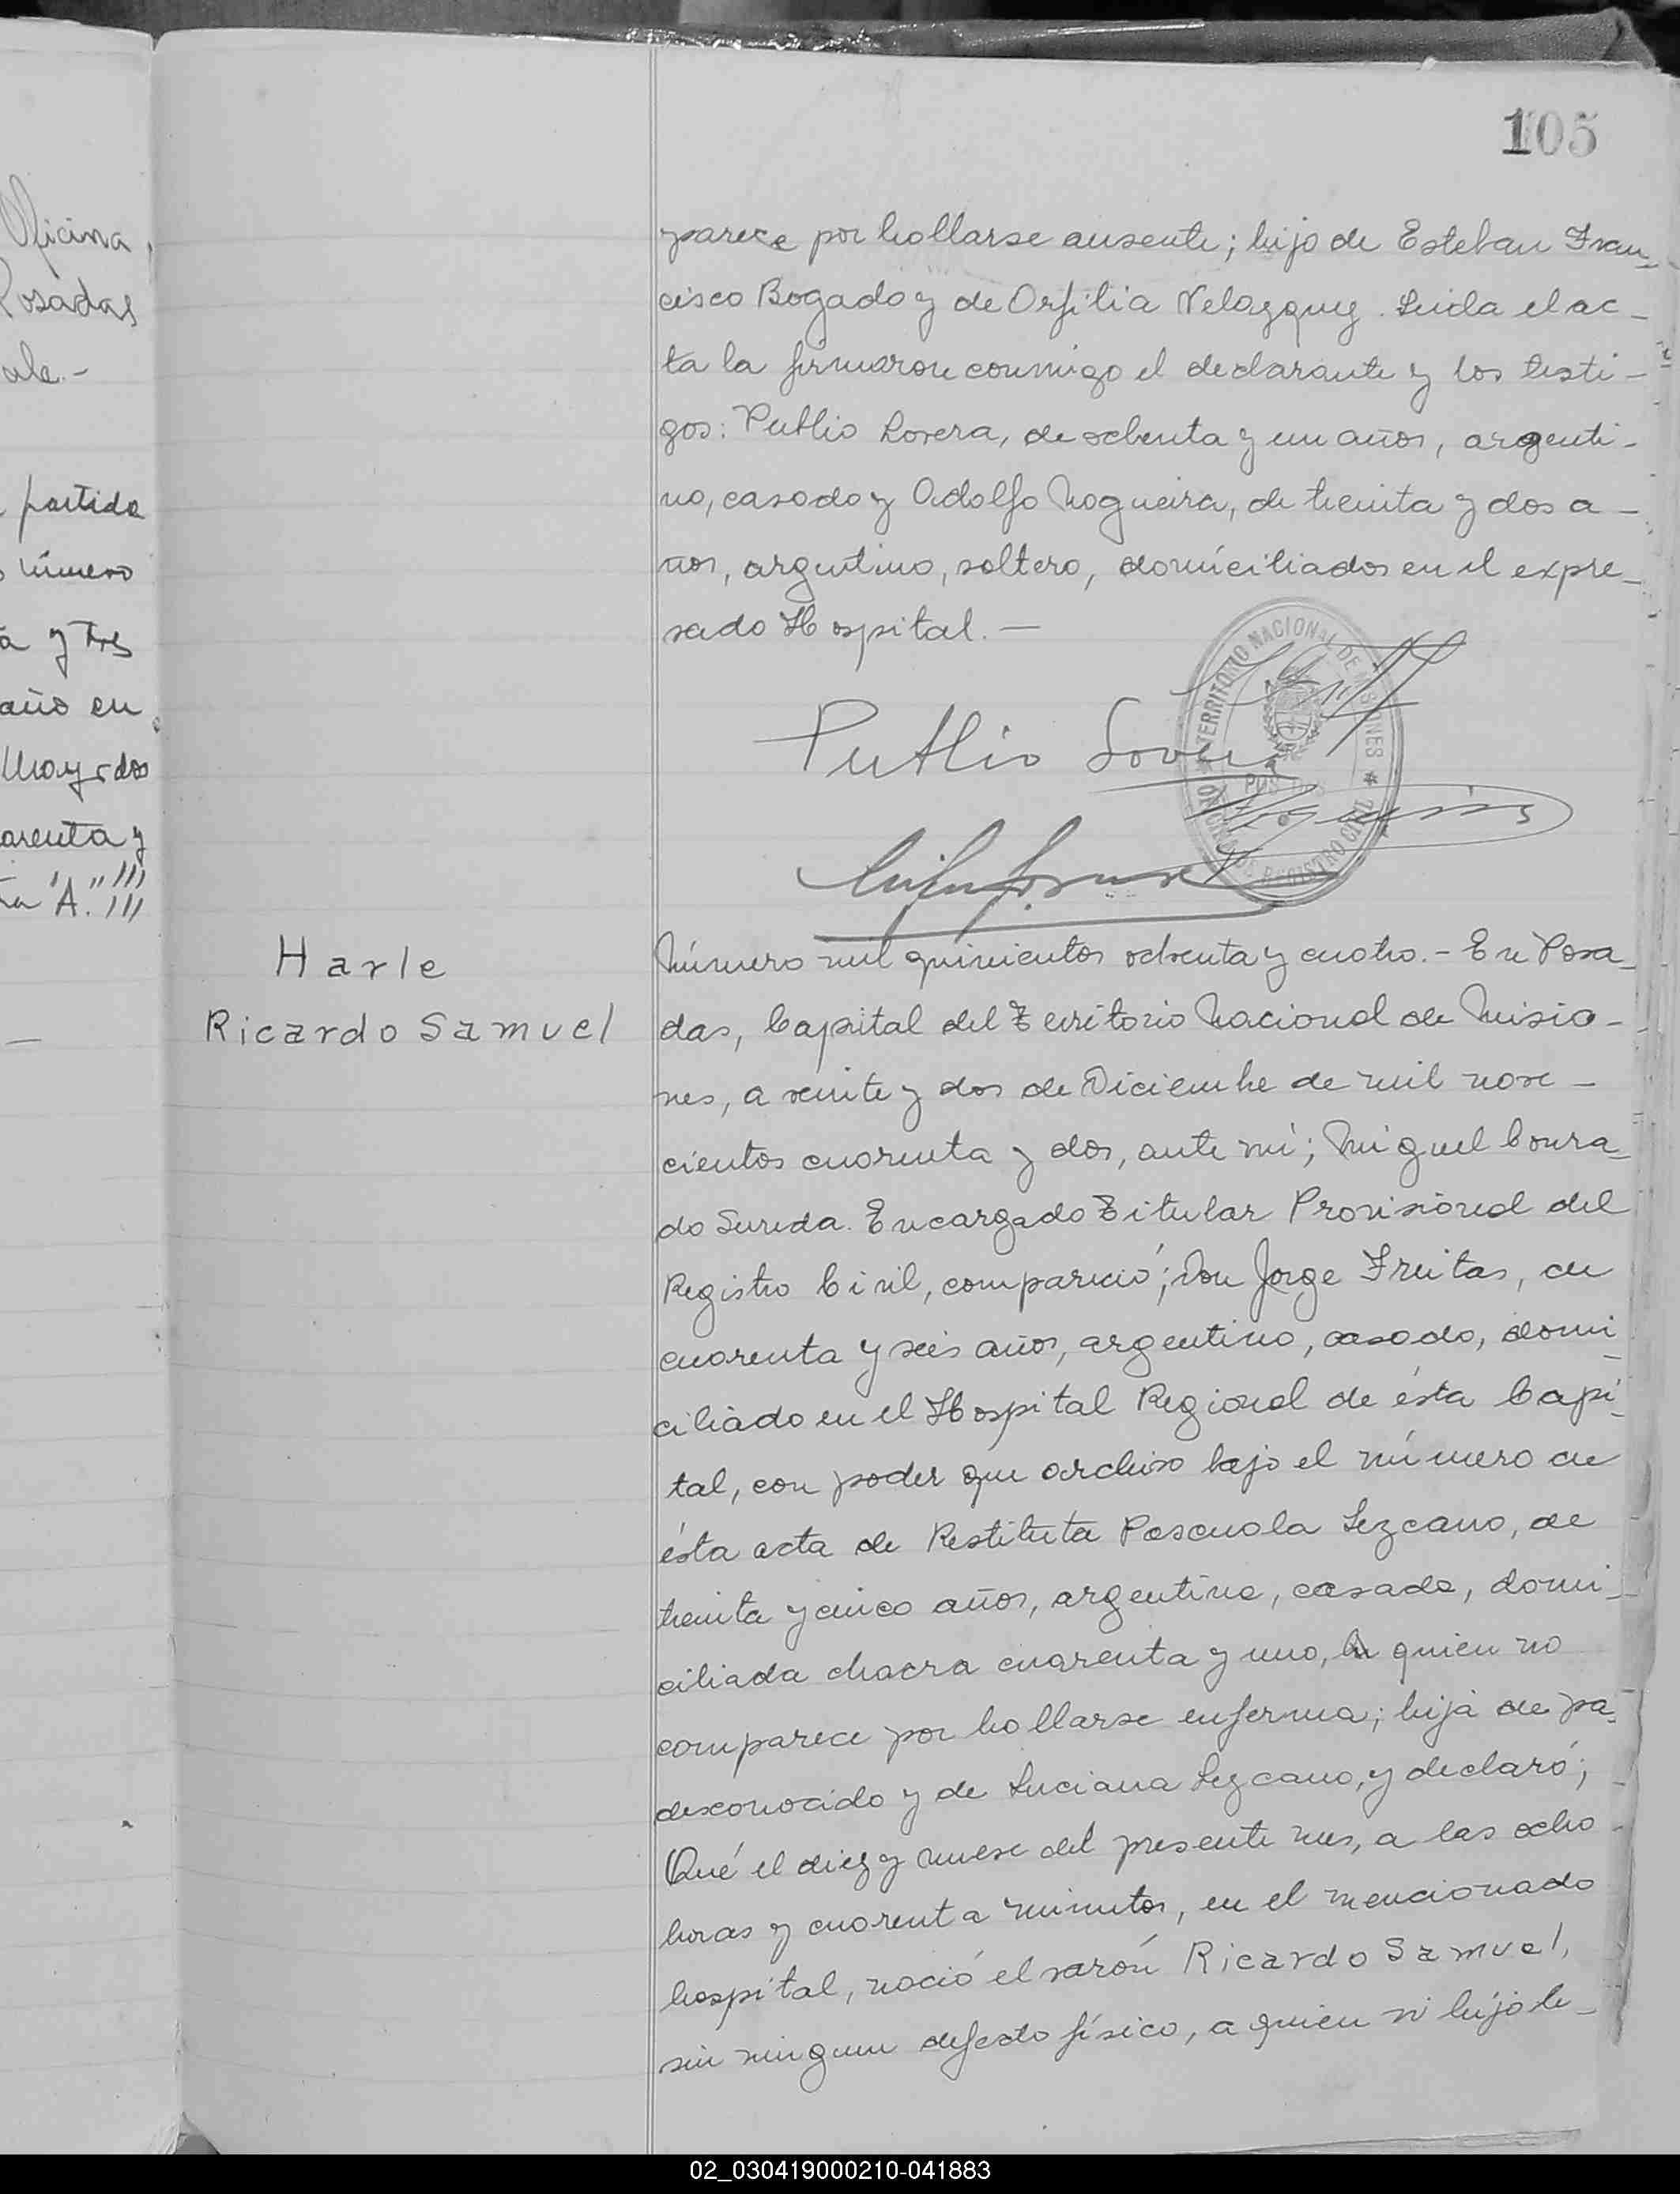 105
Oficina
Posadas
ale.-
partida
número
a y tres
año en
Mayo dos
arenta y
"A."
parece por hallarse ausente; hijo de Esteban Fran-
cisco Bogado y de Orfilia Velazquez. Leida el ac-
ta la firmaron conmigo el declarante y los testi-
gos: Publio Lovera, de ochenta y un años, argenti-
no, casado y Adolfo Nogueira, de treinta y dos a-
ños, argentino, soltero, domiciliados en el expre-
sado Hospital.—
TERRITORIO NACIONAL DE MISIONES
REGISTRO CIVIL
Publio Lovera
Harle
Ricardo Samuel
Número mil quinientos ochenta y cuatro.- En Posa-
das, Capital del Territorio Nacional de Misio-
nes, a veinte y dos de Diciembre de mil nove-
cientos cuarenta y dos, ante mí; Miguel Conra-
do Sureda. Encargado Titular Provisional del
Registro Civil, compareció; Don Jorge Freitas, de
cuarenta y seis años, argentino, casado, domi-
ciliado en el Hospital Regional de ésta Capi-
tal, con poder que archivo bajo el número de
ésta acta de Restituta Pascuala Lezcano, de
treinta y cinco años, argentina, casada, domi-
ciliada chacra cuarenta y uno, quien no
comparece por hallarse enferma; hija de pa-
desconocido y de Luciana Lezcano, y declaró;
Qué el diez y nueve del presente mes, a las ocho
horas y cuarenta minutos, en el mencionado
hospital, nació el varón Ricardo Samuel,
sin ningun defecto físico, a quien vi hijo le-
02_030419000210-041883